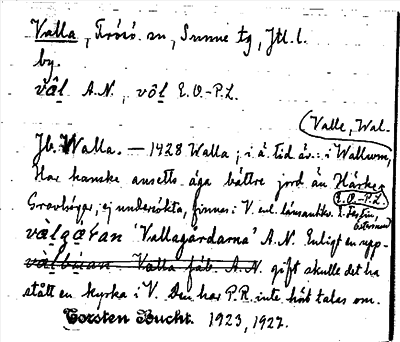 Valla, Frösö sn, Sunne tg, Jtl. l.
by.
vâl A.N., vôl E.O.-P.L.
Valle, Wal.
Jb. Walla. — 1428 Walla, i ä. tid äv.: i Wallwm,
Har kanske ansetts äga bättre jord än Härke,
E.O.-P.L.
Gravhögar, ej undersökta, finnes i V. enl.
vàlgạṙan 'Vallagårdarna' A.N. Enligt en upp-
vàlbúan Valla fäb. A.N. gift skulle det ha
stått en kyrka i V. Den har P.R. inte hört talas om.
Torsten Bucht. 1923, 1927.